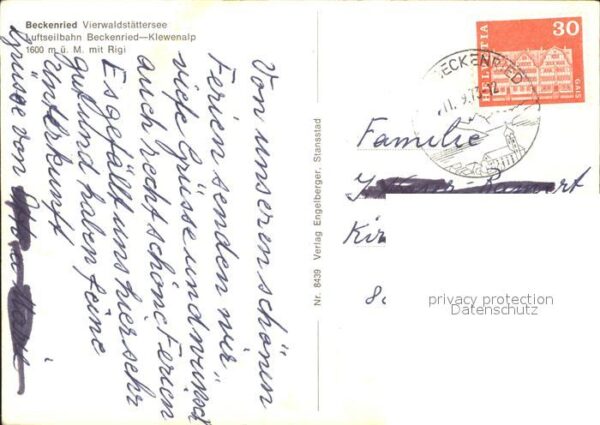 Beckenried Vierwaldstättersee
Luftseilbahn Beckenried—Klewenalp
1600 m ü. M. mit Rigi
Von unseren schönen
Ferien senden wir
viele Grüsse und wünsch
auch recht schöne Ferien
Es gefällt uns hier sehr
gut und haben feine
Unterkunft
Grüsse von
Nr. 8439 Verlag Engelberger, Stansstad
HELVETIA
30
GAIS
BECKENRIED
11. 9. 73-12
Familie
Kir
privacy protection
Datenschutz